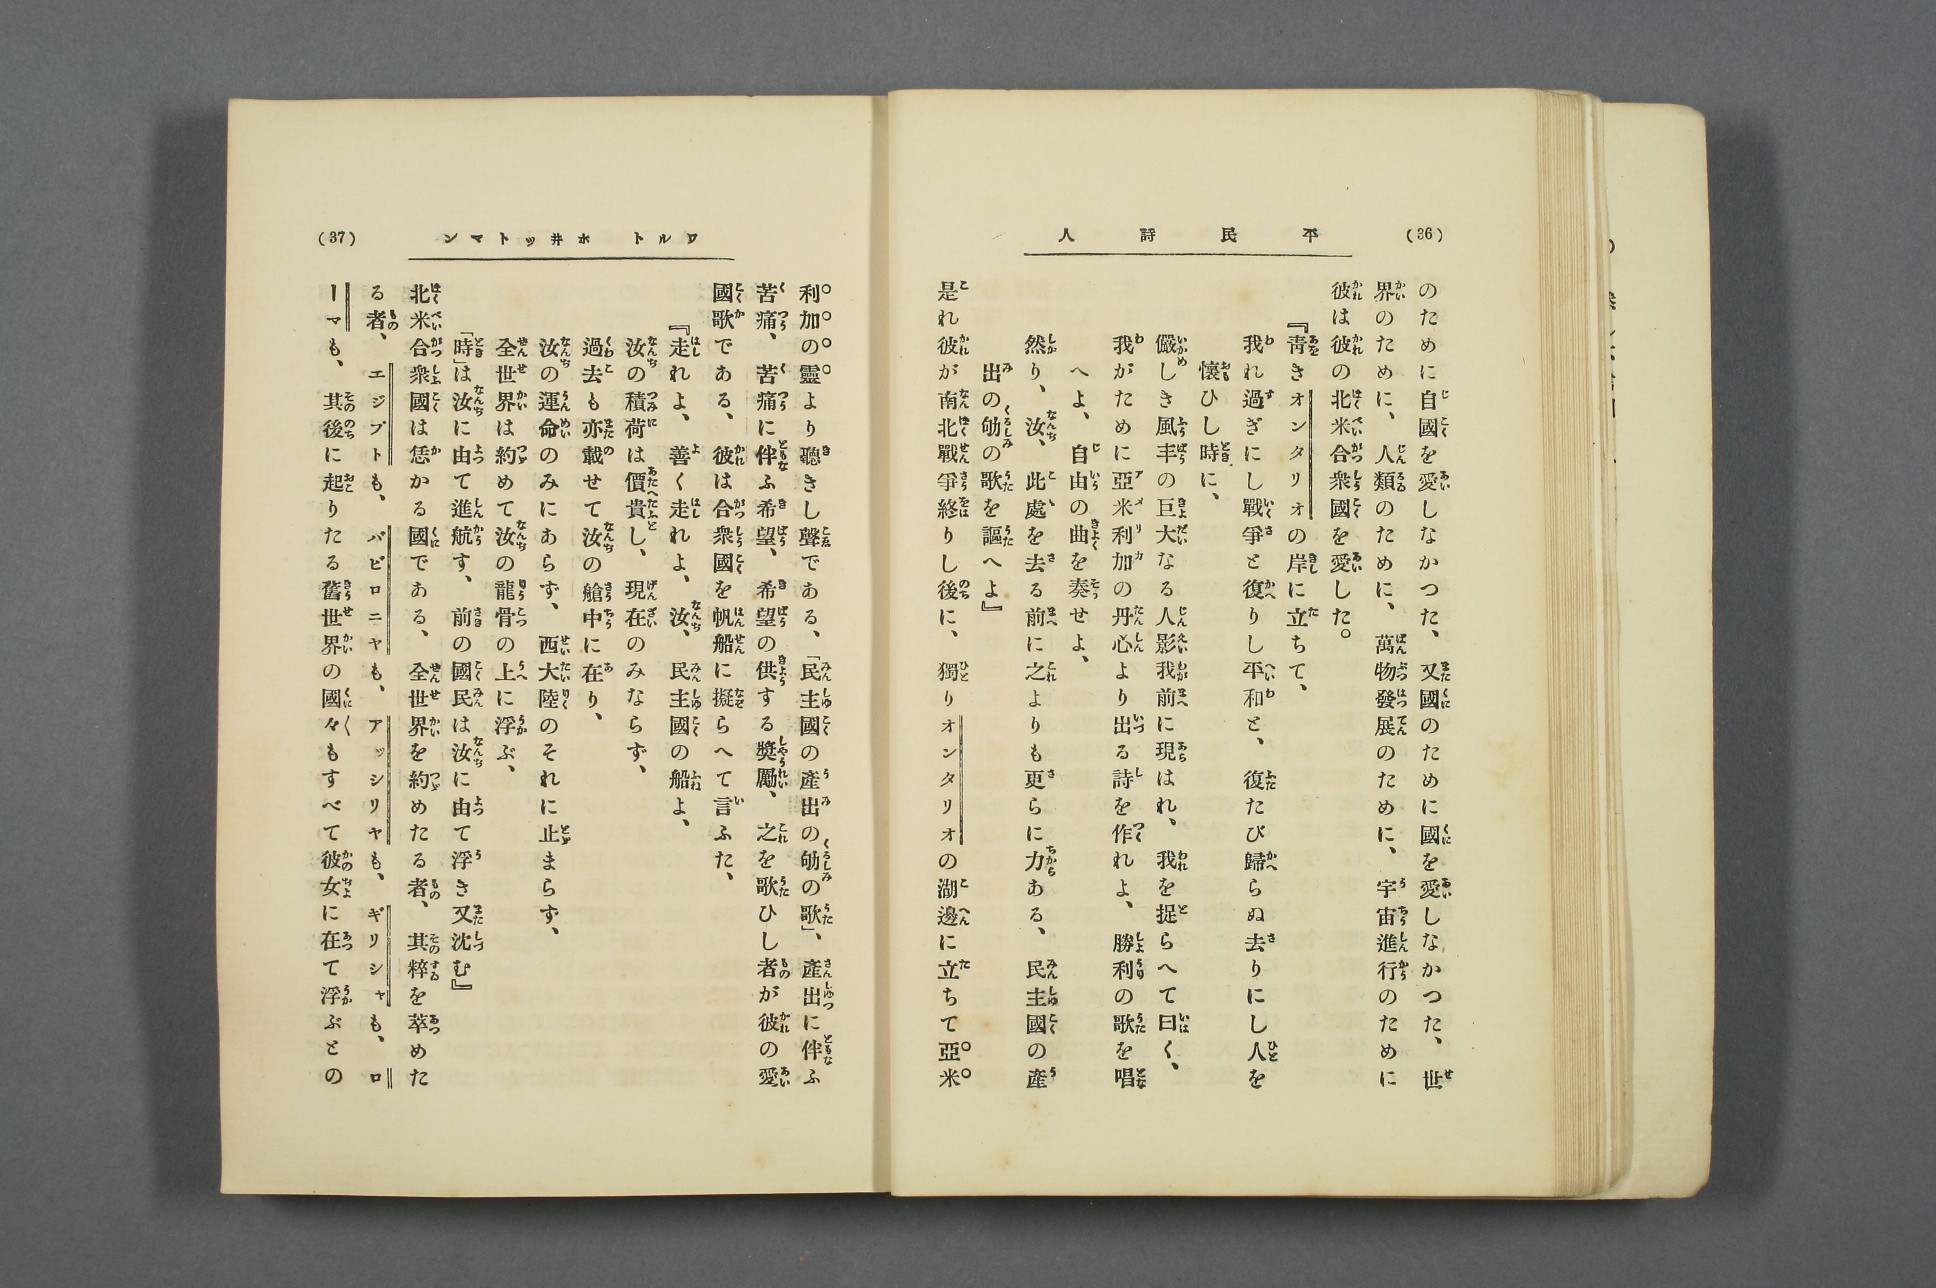 (36)
平民詩人
のために自國を愛しなかつた、又國のために國を愛しなかつた、世
界のために、人類のために、萬物發展のために、宇宙進行のために
彼は彼の北米合衆國を愛した。
『靑きオンタリオの岸に立ちて、
我れ過ぎにし戰爭と復りし平和と、復たび歸らぬ去りにし人を
懷ひし時に、
儼しき風丰の巨大なる人影我前に現はれ、我を捉らへて曰く、
我がために亞米利加の丹心より出る詩を作れよ、勝利の歌を唱
へよ、自由の曲を奏せよ、
然り、汝、此處を去る前に之よりも更らに力ある、民主國の產
出の劬の歌を謳へよ』
是れ彼が南北戰爭終りし後に、獨りオンタリオの湖邊に立ちて亞米
ワルト ホ井ットマン
(37)
利加の靈より聽きし聲である、「民主國の產出の劬の歌」、產出に伴ふ
苦痛、苦痛に伴ふ希望、希望の供する奬勵、之を歌ひし者が彼の愛
國歌である、彼は合衆國を帆船に擬らへて言ふた、
『走れよ、善く走れよ、汝、民主國の船よ、
汝の積荷は價貴し、現在のみならず、
過去も亦載せて汝の艙中に在り、
汝の運命のみにあらず、西大陸のそれに止まらず、
全世界は約めて汝の龍骨の上に浮ぶ、
「時」は汝に由て進航す、前の國民は汝に由て浮き又沈む』
北米合衆國は恁かる國である、全世界を約めたる者、其粹を萃めた
る者、エジプトも、バビロニヤも、アッシリヤも、ギリシャも、ロ
ーマも、其後に起りたる舊世界の國々もすべて彼女に在て浮ぶとの